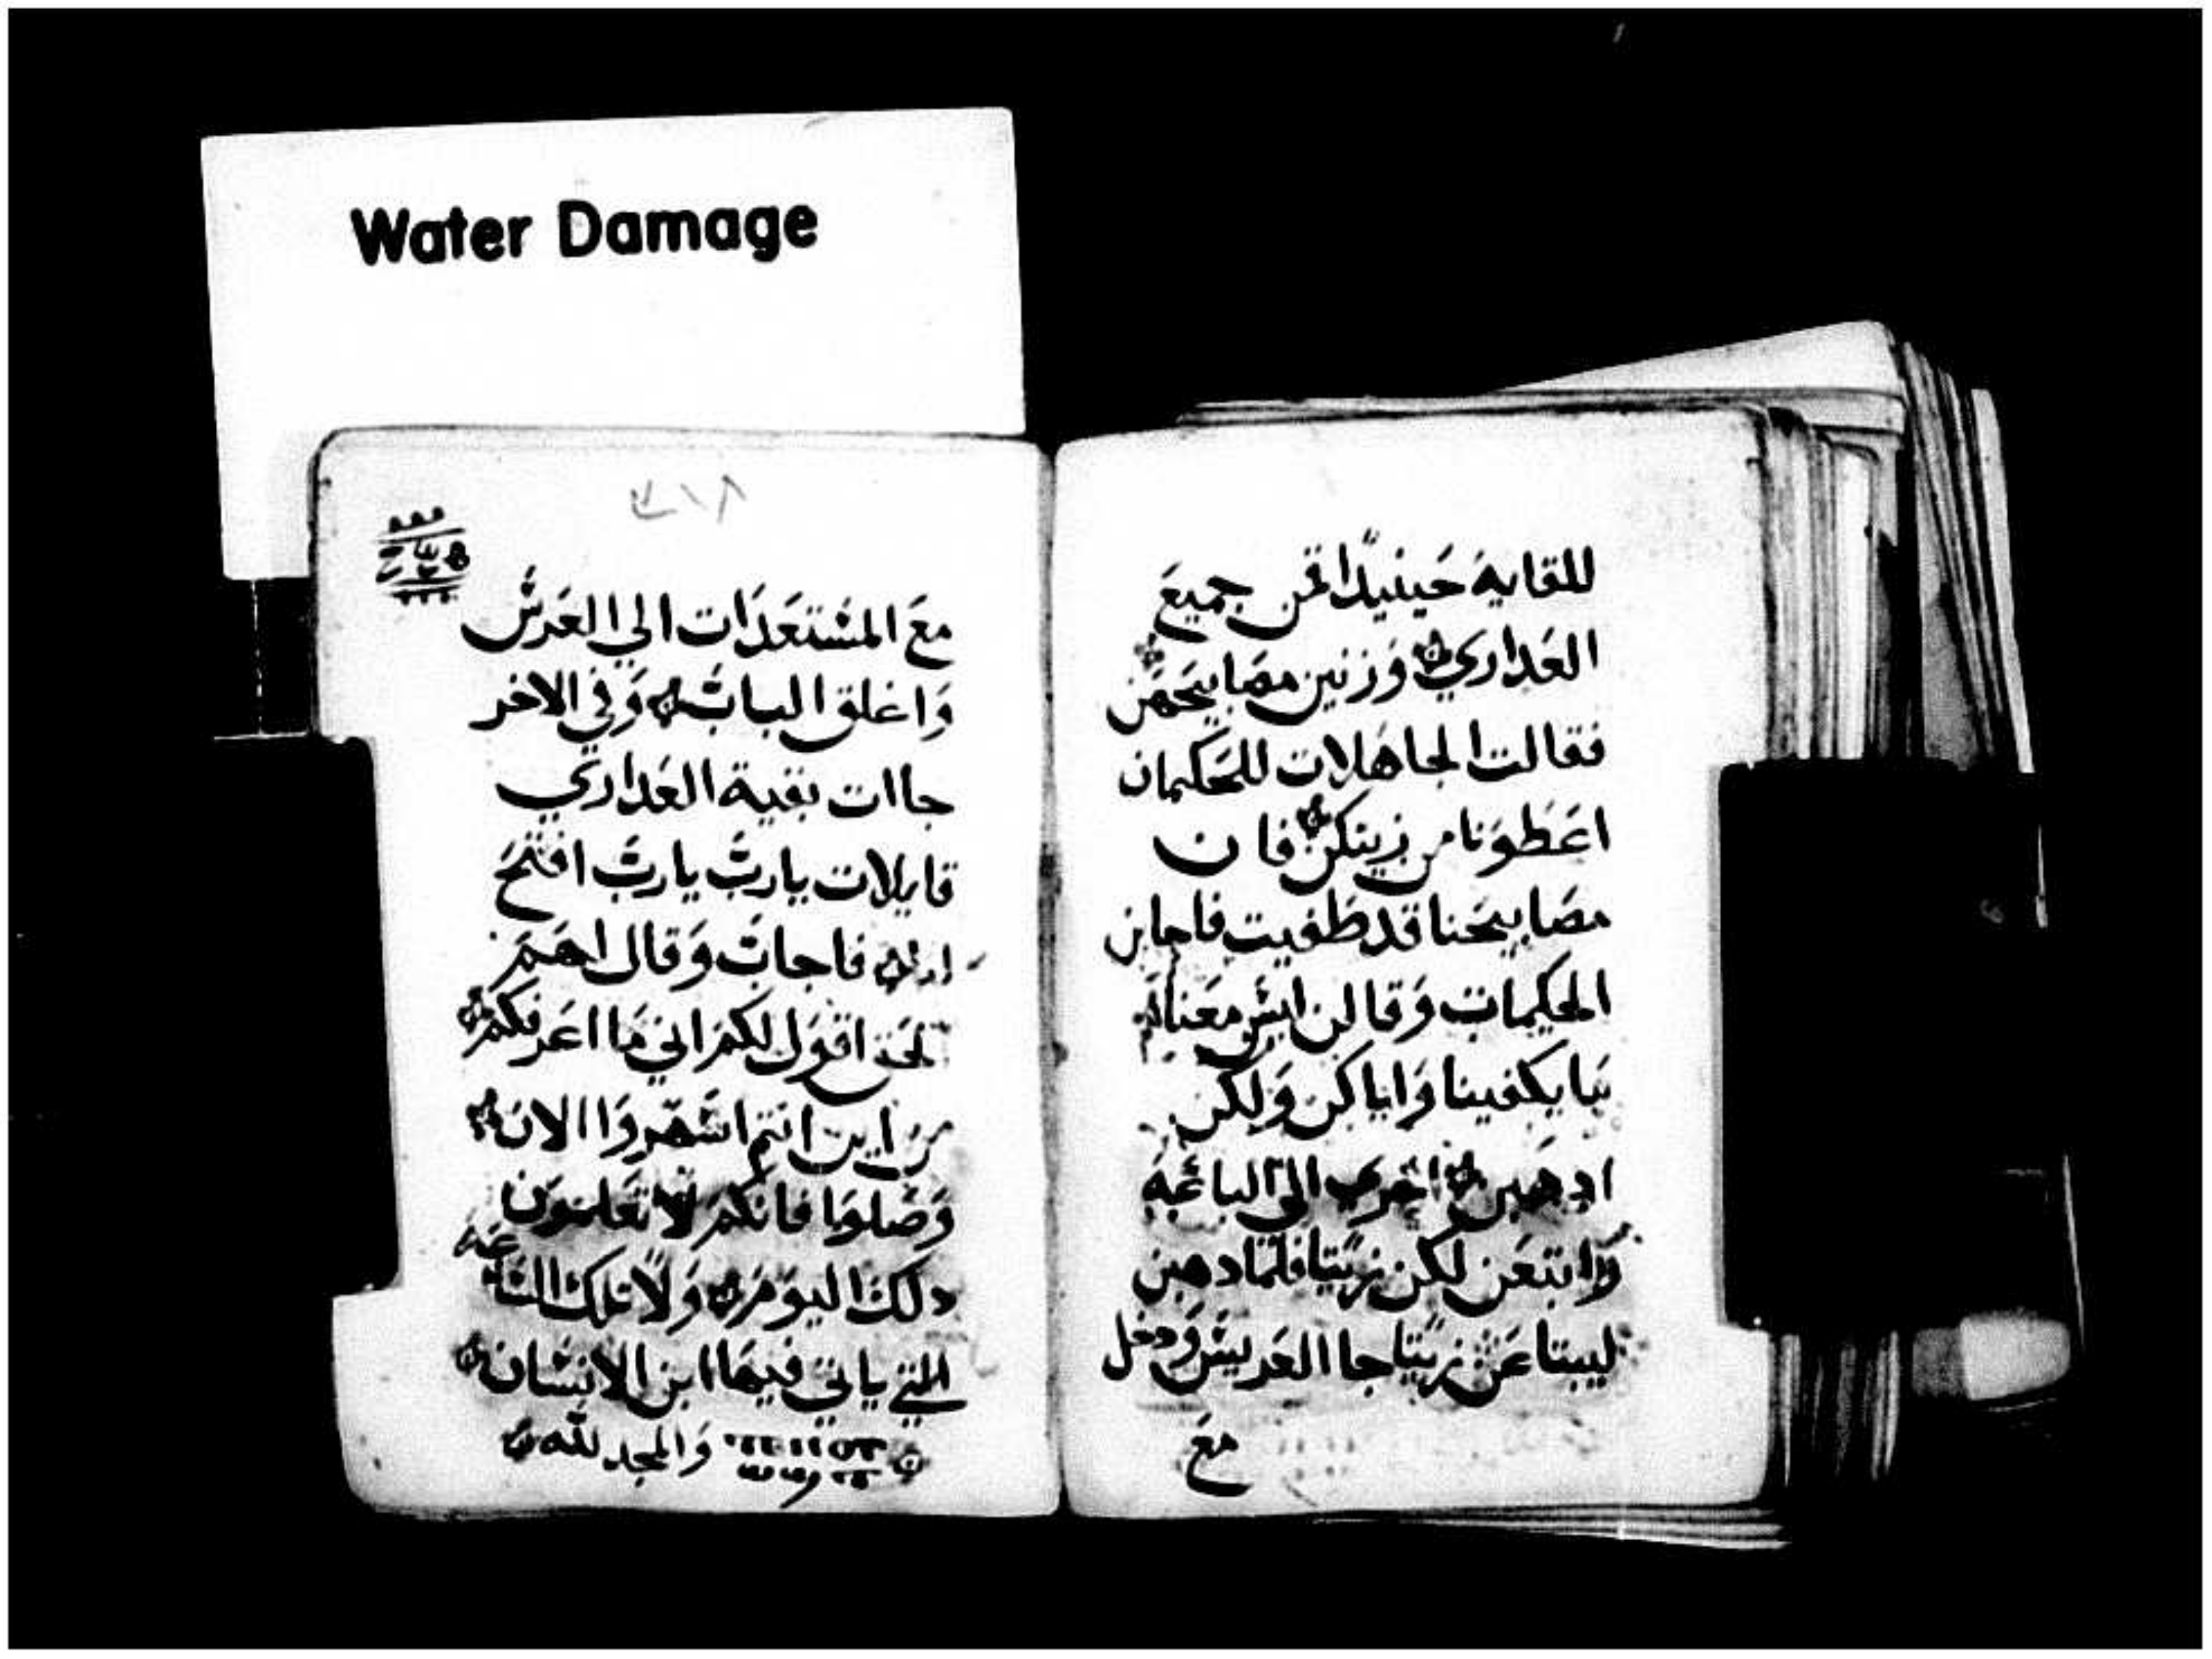 Water Damage
للقايه حينيدا قمن جميع
العداري وزنين مصابيحهن
فقالت الجاهلات للحكيمات
اعطونا من زيتكن فان
مصابيحنا قد طفيت فاجابن
الحكيمات وقالن ليس معنا
ما يكفينا واياكن ولكن
ادهبن احري الي الباعه
وابتعن لكن زيتا فلما دهبن
ليبتاعن زيتا جا العريس ودخل
مع
مع المستعدات الي العرس
واغلق الباب وفي الاخر
جاات بقية العداري
قايلات يارب يارب افتح
لنا فاجاب وقال لهم
الحق اقول لكم اني ما اعرفكم
من اين انتم اسهروا الان
وصلوا فانكم لا تعلمون
دلك اليوم ولا تلك الساعه
التي ياتي فيها ابن الانسان
والمجد لله